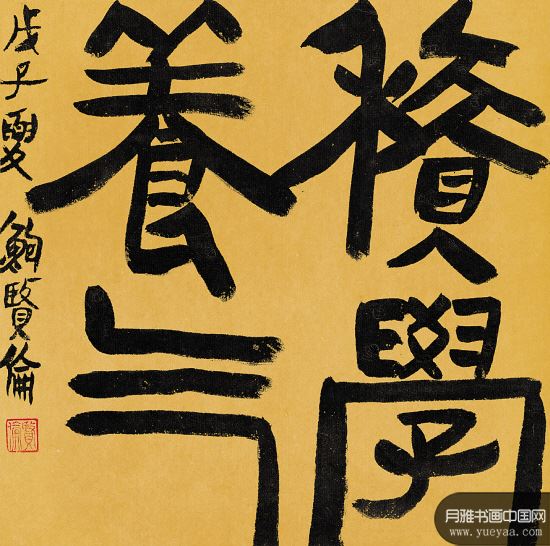 積學
養气
戊子夏 鮑賢倫
月雅书画中国网
www.yueyaa.com